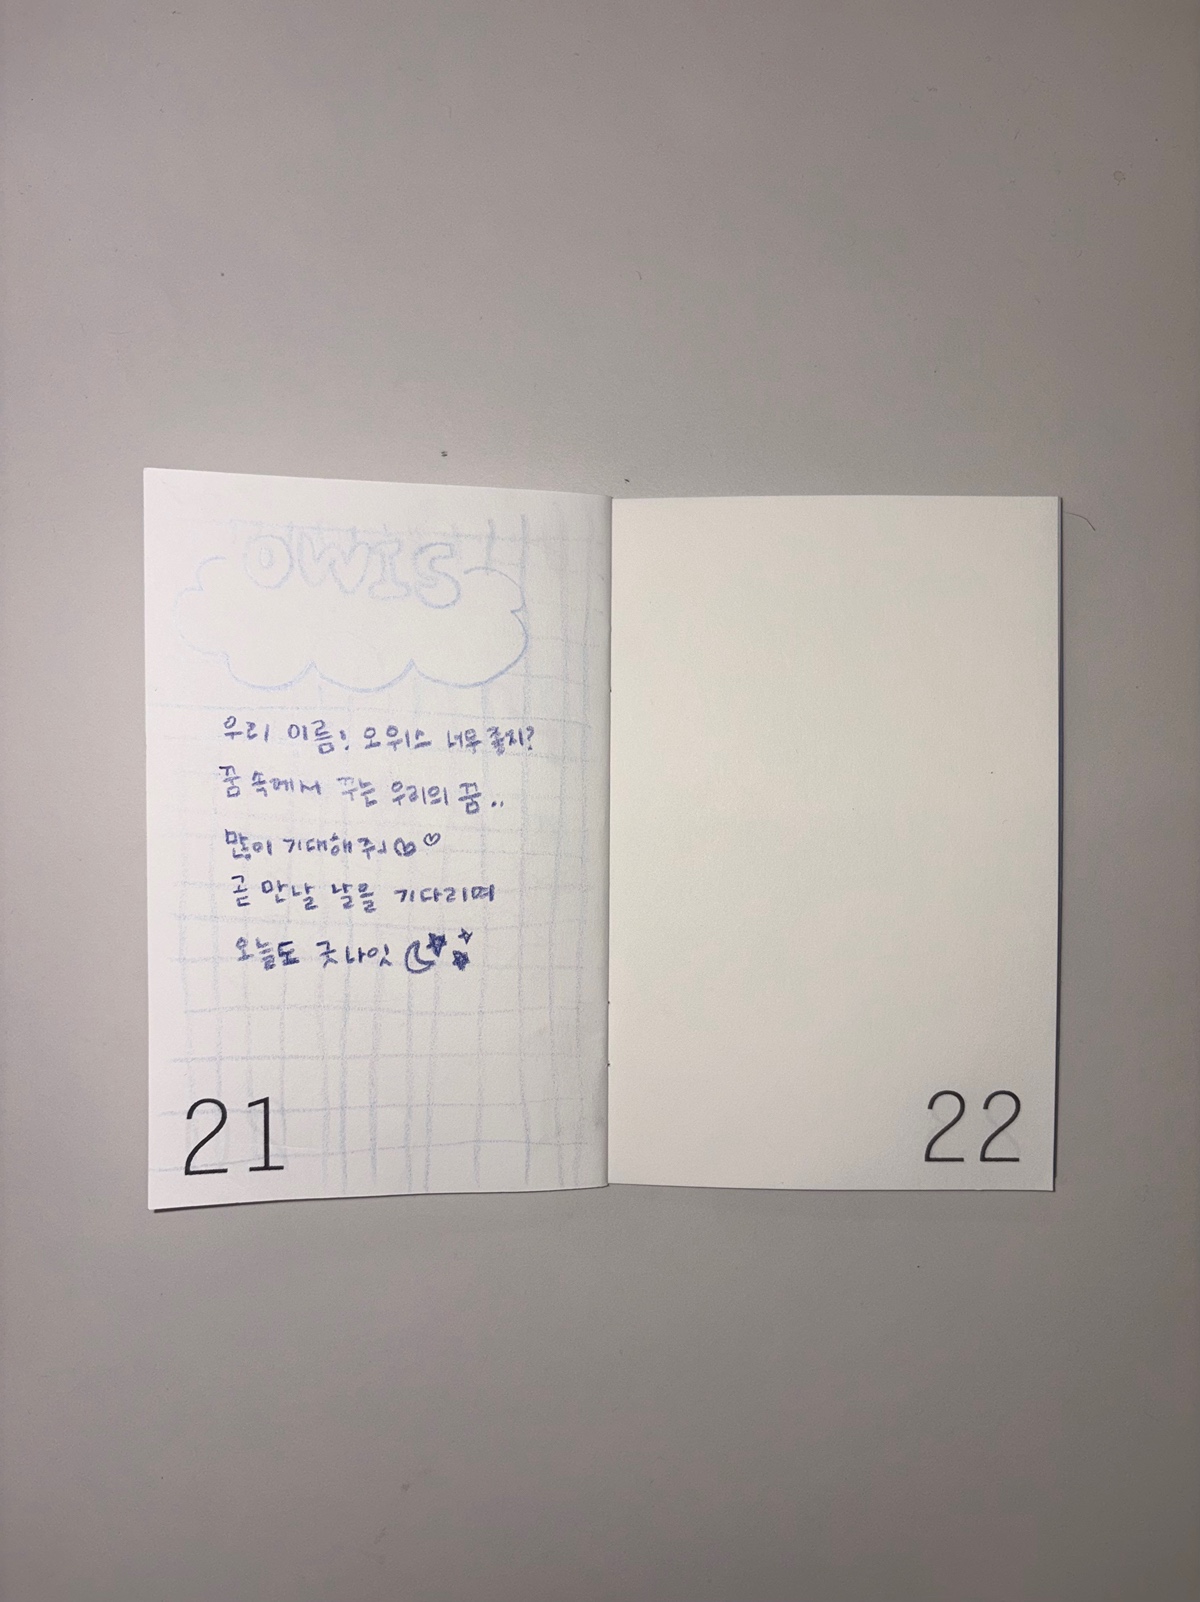 OWIS
우리 이름! 오위스 너무 좋지?
꿈 속에서 꾸는 우리의 꿈..
많이 기대해줘
곧 만날 날을 기다리며
오늘도 굿나잇
21
22